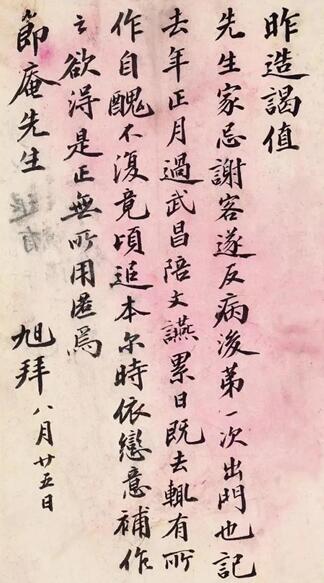 昨造謁值
先生家忌謝客遂反病後第一次出門也記
去年正月過武昌陪文讌累日既去輒有所
作自醜不復竟頃追本尓時依戀意補作
之欲得是正無所用匿焉
節庵先生 旭拜 八月廿五日